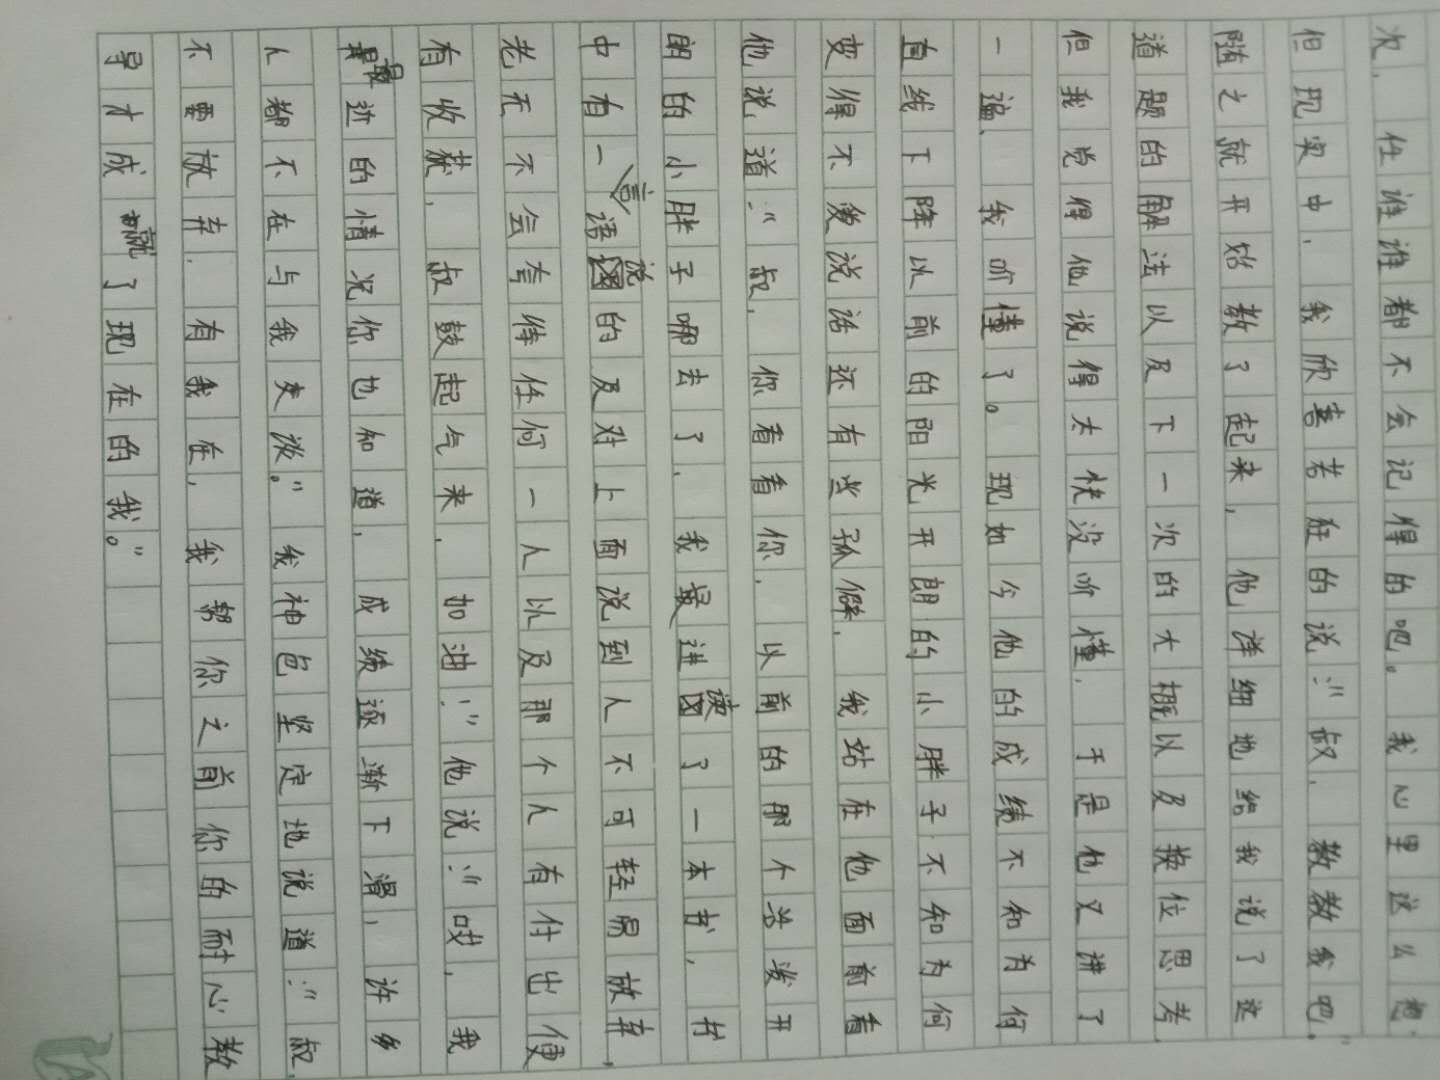 次，任谁谁都不会记得的吧。我心里这么想.
但现实中，我欣喜若狂的说：“叔，教教我吧.”
随之就开始教了起来，他详细地给我说了这
道题的解法以及下一次的大概以及换位思考
但我觉得他说得太快没听懂，于是他又讲了
一遍、我听懂了。现如今他的成绩不知为何
直线下降以前的阳光开朗的小胖子不知为何
变得不爱说话还有些孤僻，我站在他面前看
他说道：“叔，你看看你，以前的那个活泼开
朗的小胖子哪去了，我最进读了一本书，书
中有一言语说的及对上面说到人不可轻易放弃，
老天不会夸待任何一人以及那个人有付出便
有收获，叔鼓起气来，加油！”他说：“哎，我
最近的情况你也知道，成绩逐渐下滑，许多
人都不在与我交谈。”我神色坚定地说道：“叔，
不要放弃，有我在，我帮你之前你的耐心教
导才成就了现在的我。”